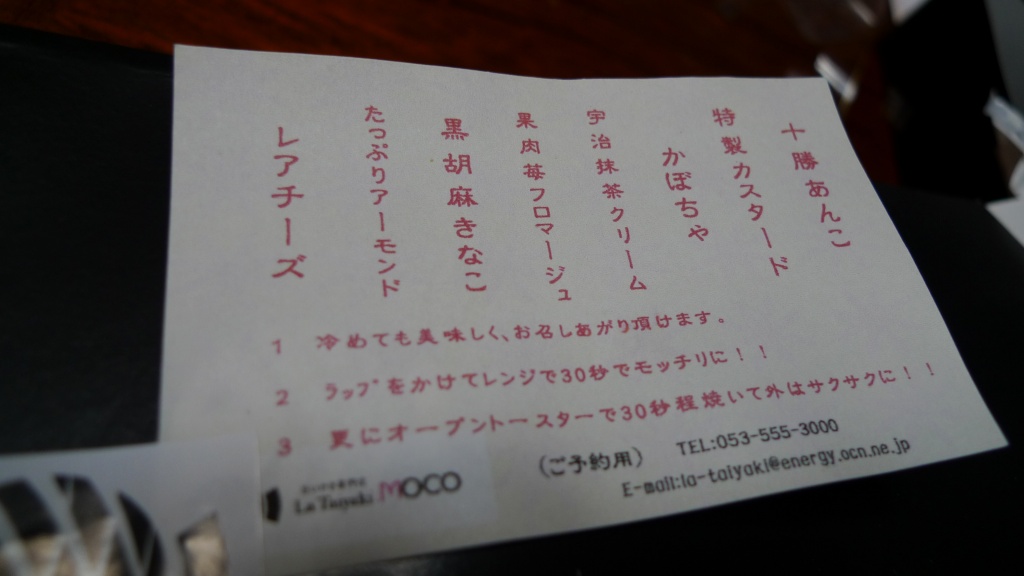 十勝あんこ
特製カスタード
かぼちゃ
宇治抹茶クリーム
果肉苺フロマージュ
黒胡麻きなこ
たっぷりアーモンド
レアチーズ
1 冷めても美味しく、お召しあがり頂けます。
2 ラップをかけてレンジで30秒でモッチリに！！
3 更にオーブントースターで30秒程焼いて外はサクサクに！！
(ご予約用) TEL:053-555-3000
E-mail:la-taiyaki@energy.ocn.ne.jp
La Taiyaki MOCO